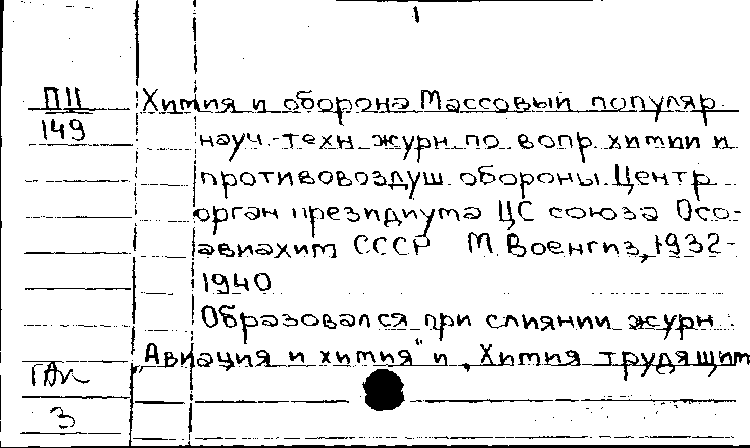 1
П11
149
Химия и оборона Массовый популяр.
науч.-техн. журн. по вопр. химии и
противовоздуш. обороны. Центр.
орган президиума ЦС союза Осо-
авиахим СССР М. Воениз, 1932-
1940
Образовался при слиянии журн.:
„Авиация и химия" и „Химия трудящим
3